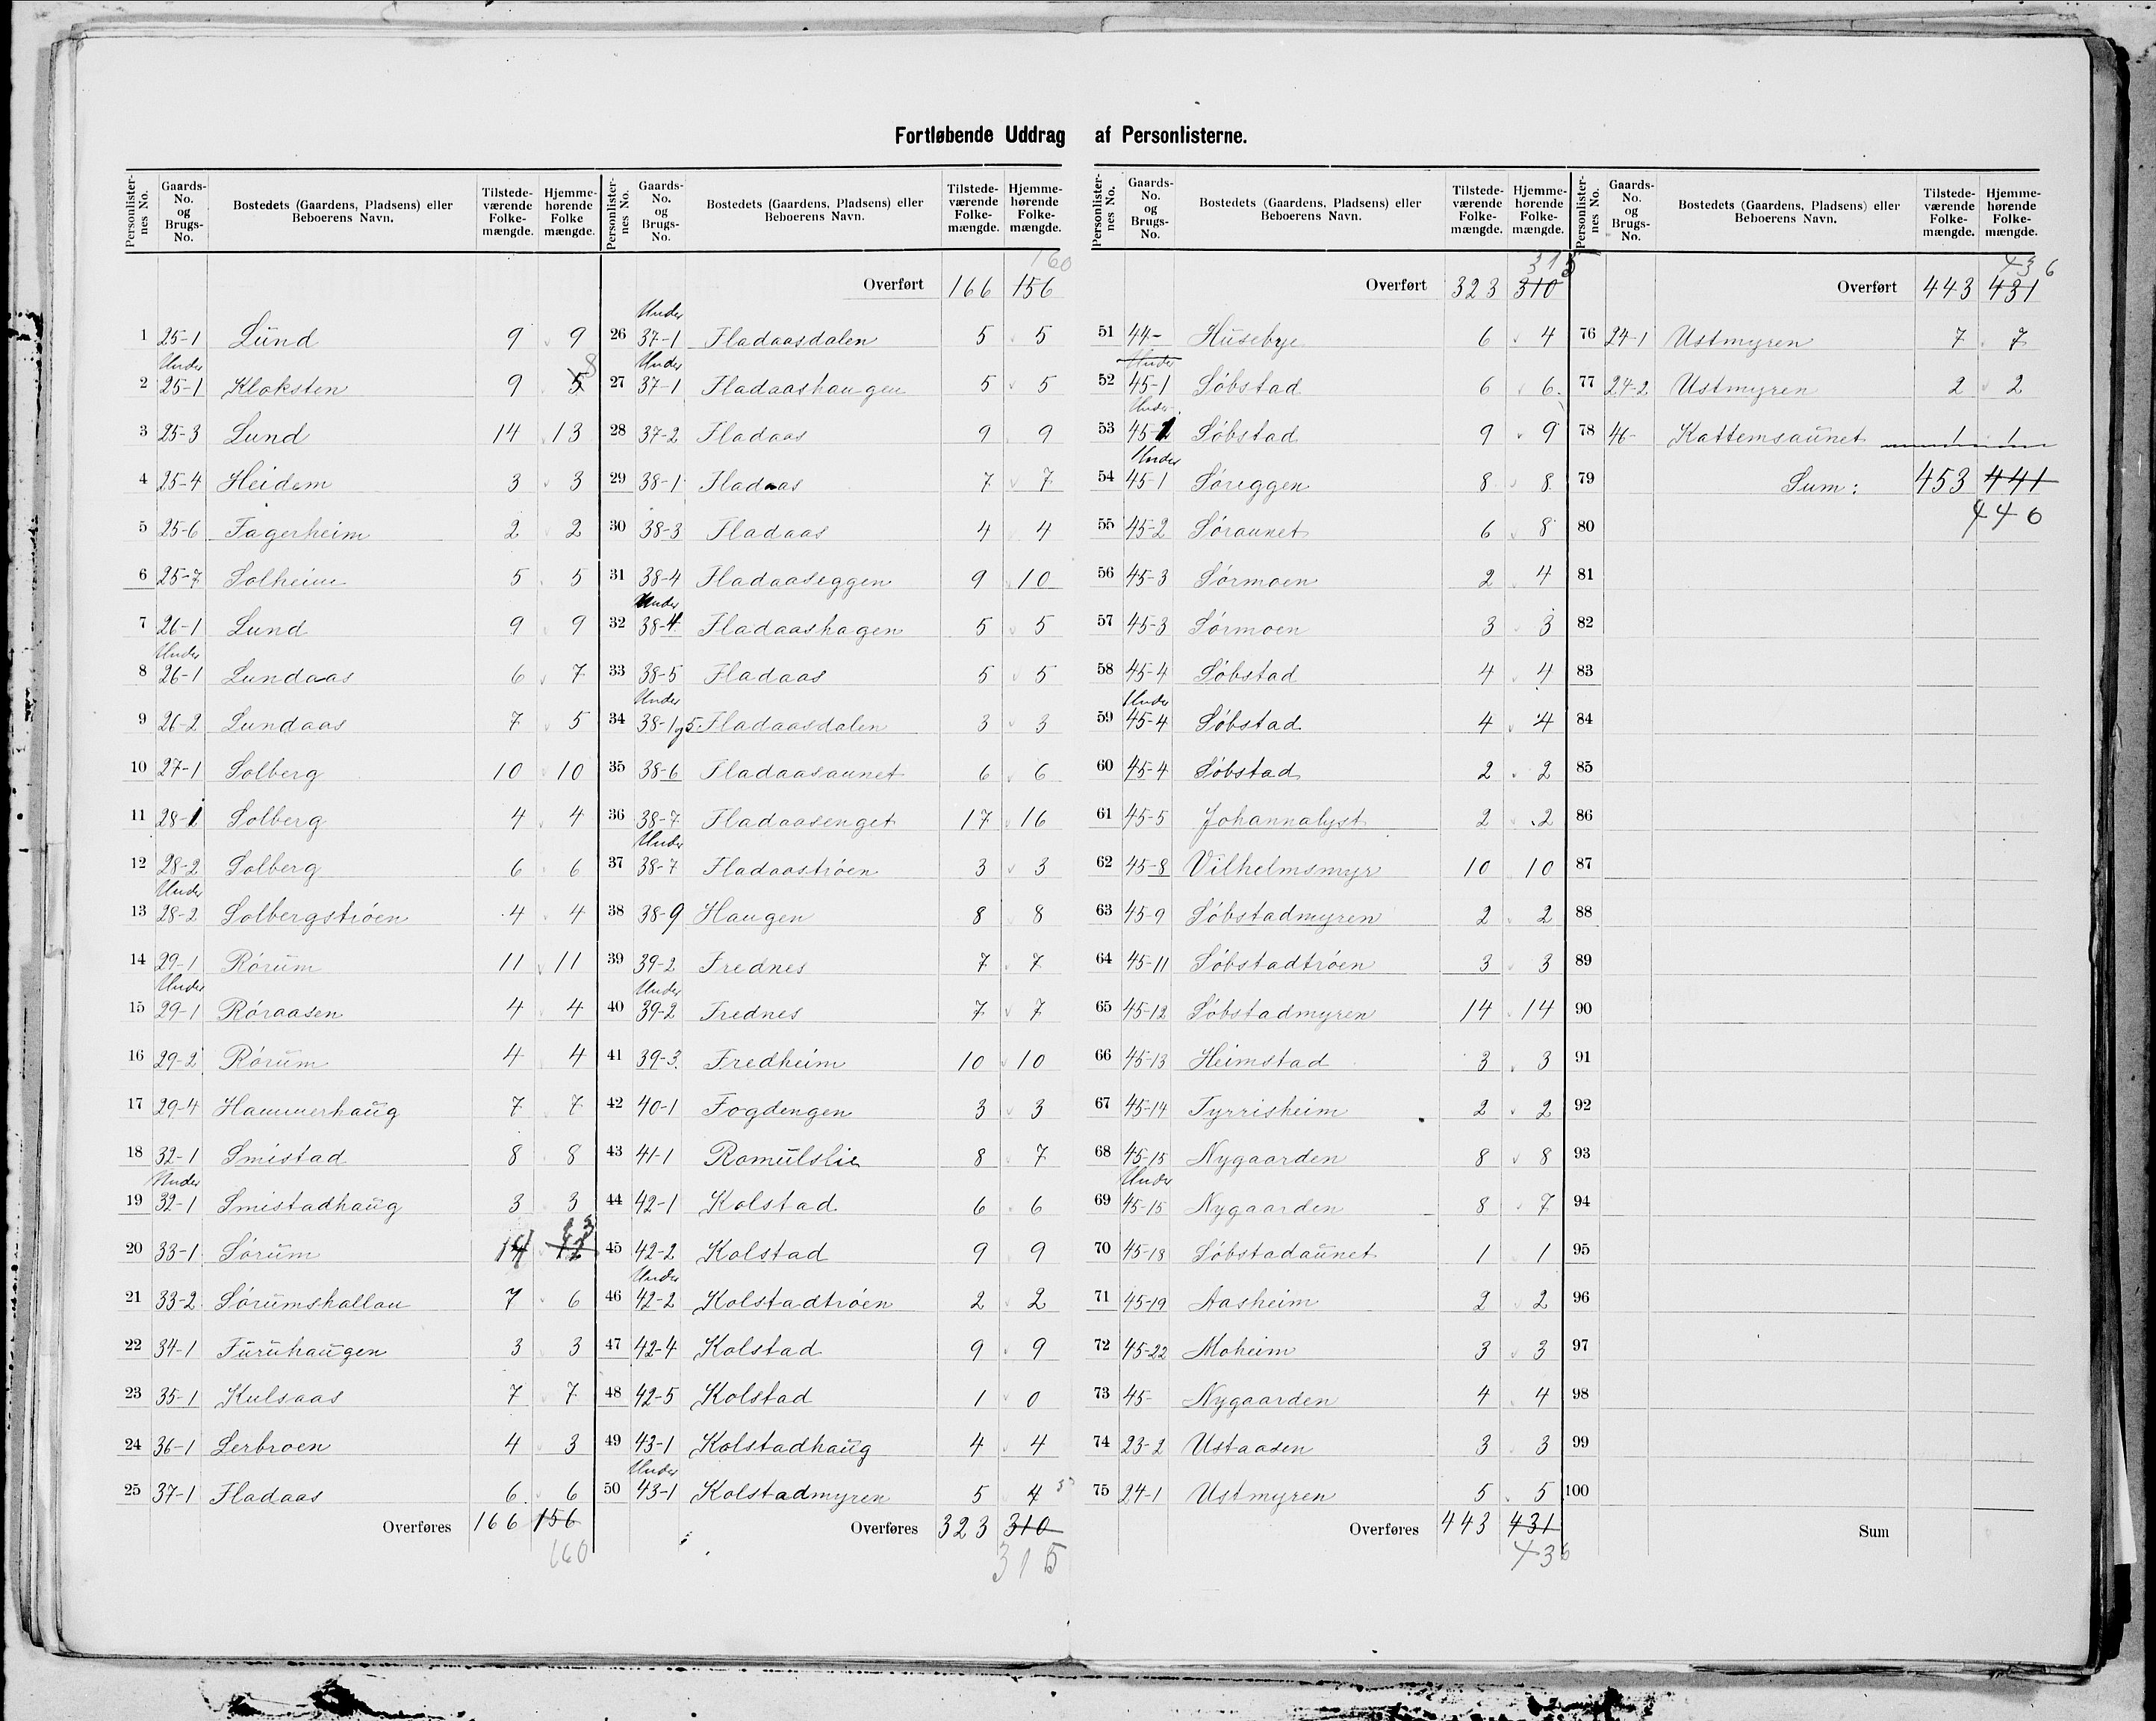 Fortløbende Uddrag af Personlisterne.
Personlister-nes No. | Gaards-No. og Brugs-No. | Bostedets (Gaardens, Pladsens) eller Beboerens Navn. | Tilstede-værende Folke-mængde. | Hjemme-hørende Folke mængde.
1 25-1 Lund 9 9
2 Under 25-1 Kloksten 9 5 8
3 25-3 Lund 14 13
4 25-4 Heidem 3 3
5 25-6 Fagerheim 2 2
6 25-7 Solheim 5 5
7 26-1 Lund 9 9
8 Under 26-1 Lundaas 6 7
9 26-2 Lundaas 7 5
10 27-1 Solberg 10 10
11 28-1 Solberg 4 4
12 28-2 Solberg 6 6
13 Under 28-2 Solbergstrøen 4 4
14 29-1 Rørum 11 11
15 Under 29-1 Røraasen 4 4
16 29-2 Rørum 4 4
17 29-4 Hammerhaug 7 7
18 32-1 Smistad 8 8
19 Under 32-1 Smistadhaug 3 3
20 33-1 Sørum 14 12 13
21 33-2 Sørumshallan 7 6
22 34-1 Furuhaugen 3 3
23 35-1 Kulsaas 7 7
24 36-1 Lerbroen 4 3
25 37-1 Fladaas 6 6
Overføres 166 156
160
Personlister-nes No. | Gaards-No. og Brugs-No. | Bostedets (Gaardens, Pladsens) eller Beboerens Navn. | Tilstede-værende Folke-mængde. | Hjemme-hørende Folke-mængde.
160
Overført 166 156
26 Under 37-1 Fladaasdalen 5 5
27 Under 37-1 Fladaashaugen 5 5
28 37-2 Fladaas 9 9
29 38-1 Fladaas 7 7
30 38-3 Fladaas 4 4
31 38-4 Fladaaseggen 9 10
32 Under 38-4 Fladaashagen 5 5
33 38-5 Fladaas 5 5
34 Under 38-1 og 5 Fladaasdalen 3 3
35 38-6 Fladaasaunet 6 6
36 38-7 Fladaasenget 17 16
37 Under 38-7 Fladaastrøen 3 3
38 38-9 Haugen 8 8
39 39-2 Frednes 7 7
40 Under 39-2 Frednes 7 7
41 39-3 Fredheim 10 10
42 40-1 Fogdengen 3 3
43 41-1 Romulslie 8 7
44 42-1 Kolstad 6 6
45 42-2 Kolstad 9 9
46 Under 42-2 Kolstadtrøen 2 2
47 42-4 Kolstad 9 9
48 42-5 Kolstad 1 0
49 43-1 Kolstadhaug 4 4
50 Under 43-1 Kolstadmyren 5 4 5
Overføres 323 310
315
Personlister-nes No. | Gaards-No. og Brugs-No. | Bostedets (Gaardens, Pladsens) eller Beboerens Navn. | Tilstede-værende Folke-mængde. | Hjemme-hørende Folke-mængde.
315
Overført 323 310
51 44- Husebye 6 4
52 Under 45-1 Søbstad 6 6
53 Under 45-1 Søbstad 9 9
54 Under 45-1 Søreggen 8 8
55 45-2 Søraunet 6 8
56 45-3 Sørmoen 2 4
57 45-3 Sørmoen 3 3
58 45-4 Søbstad 4 4
59 Under 45-4 Søbstad 4 4
60 45-4 Søbstad 2 2
61 45-5 Johannalyst 2 2
62 45-8 Vilhelmsmyr 10 10
63 45-9 Søbstadmyren 2 2
64 45-11 Søbstadtrøen 3 3
65 45-12 Søbstadmyren 14 14
66 45-13 Heimstad 3 3
67 45-14 Tyrrisheim 2 2
68 45-15 Nygaarden 8 8
69 Under 45-15 Nygaarden 8 7
70 45-18 Søbstadaunet 1 1
71 45-19 Aasheim 2 2
72 45-22 Moheim 3 3
73 45- Nygaarden 4 4
74 23-2 Ustaasen 3 3
75 24-1 Ustmyren 5 5
Overføres 443 431
436
Personlister-nes No. | Gaards-No. og Brugs-No. | Bostedets (Gaardens, Pladsens) eller Beboerens Navn. | Tilstede-værende Folke-mængde. | Hjemme-hørende Folke-mængde.
436
Overført 443 431
76 24-1 Ustmyren 7 7
77 24-2 Ustmyren 2 2
78 46- Kattemsaunet 1 1
79 Sum: 453 441
80 446
81
82
83
84
85
86
87
88
89
90
91
92
93
94
95
96
97
98
99
100
Sum